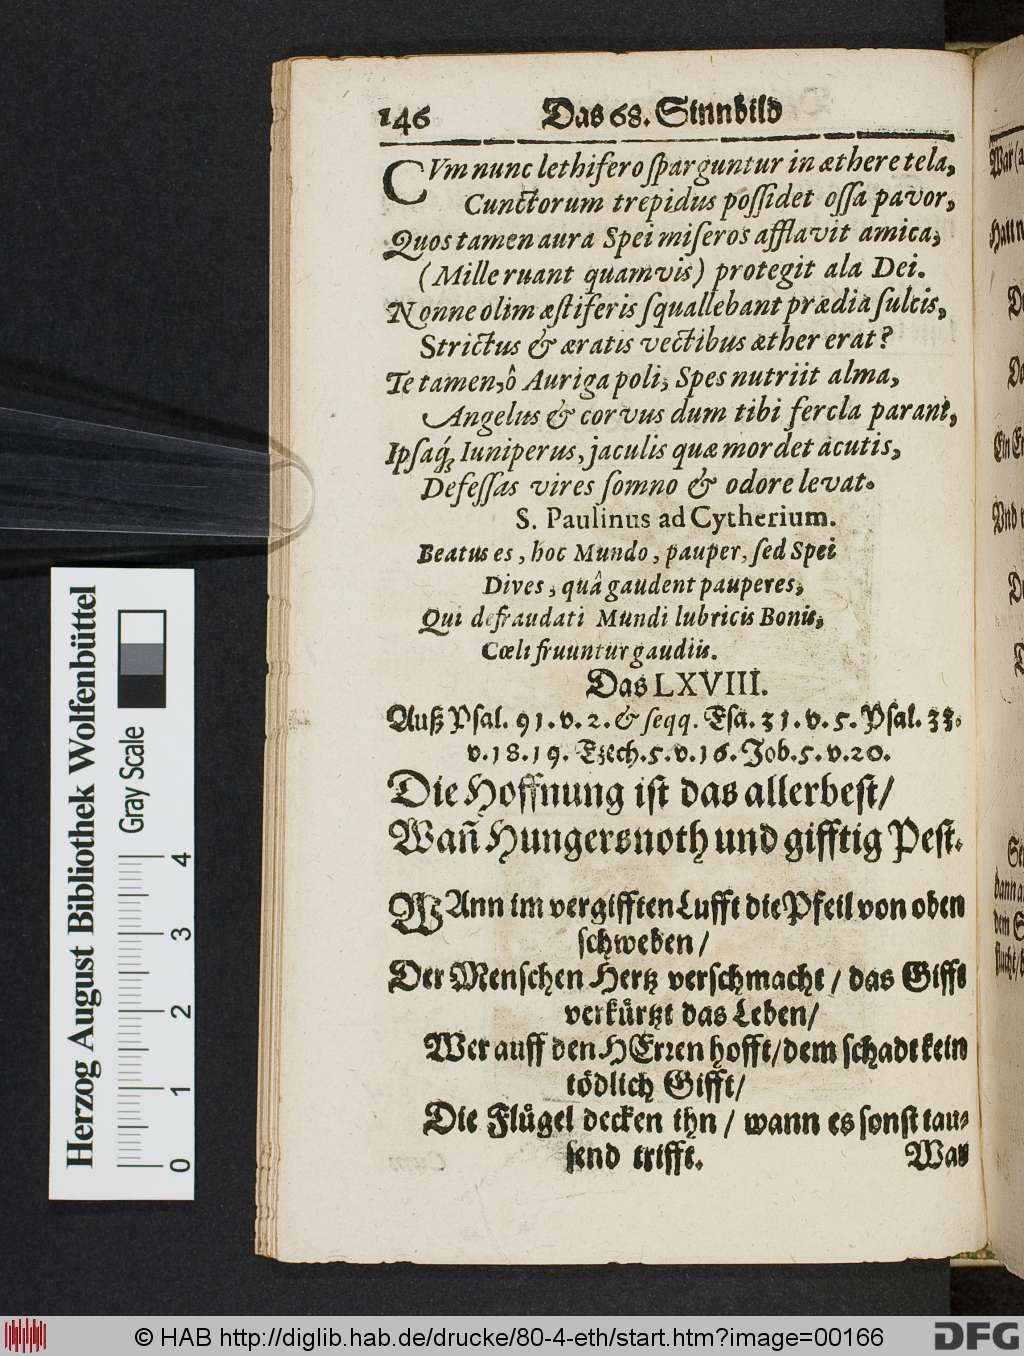 146 Das 68. Sinnbild
CVm nunc lethifero sparguntur in æthere tela,
Cunctorum trepidus possidet ossa pavor,
Quos tamen aura Spei miseros afflavit amica,
(Mille ruant quamvis) protegit ala Dei.
Nonne olim æstiferis squallebant prædia sulcis,
Strictus & æratis vectibus æther erat?
Te tamen, ô Auriga poli, Spes nutriit alma,
Angelus & corvus dum tibi fercla parant,
Ipsaq́; Iuniperus, jaculis quæ mordet acutis,
Defessas vires somno & odore levat.
S. Paulinus ad Cytherium.
Beatus es, hoc Mundo, pauper, sed Spei
Dives, quâ gaudent pauperes,
Qui defraudati Mundi lubricis Bonis,
Cœli fruuntur gaudiis.
Das LXVIII.
Auß Psal. 91. v. 2. & seqq. Esa. 31. v. 5. Psal. 33.
v. 18. 19. Ezech. 5. v. 16. Job. 5. v. 20.
Die Hoffnung ist das allerbest/
Wañ Hungersnoth und gifftig Pest.
WAnn im vergifften Lufft die Pfeil von oben
schweben/
Der Menschen Hertz verschmacht / das Gifft
verkürtzt das Leben/
Wer auff den HErren hofft/ dem schadt kein
tödlich Gifft/
Die Flügel decken ihn / wann es sonst tau-
send trifft. Was
Herzog August Bibliothek Wolfenbüttel
Gray Scale
0 1 2 3 4
© HAB http://diglib.hab.de/drucke/80-4-eth/start.htm?image=00166
DFG